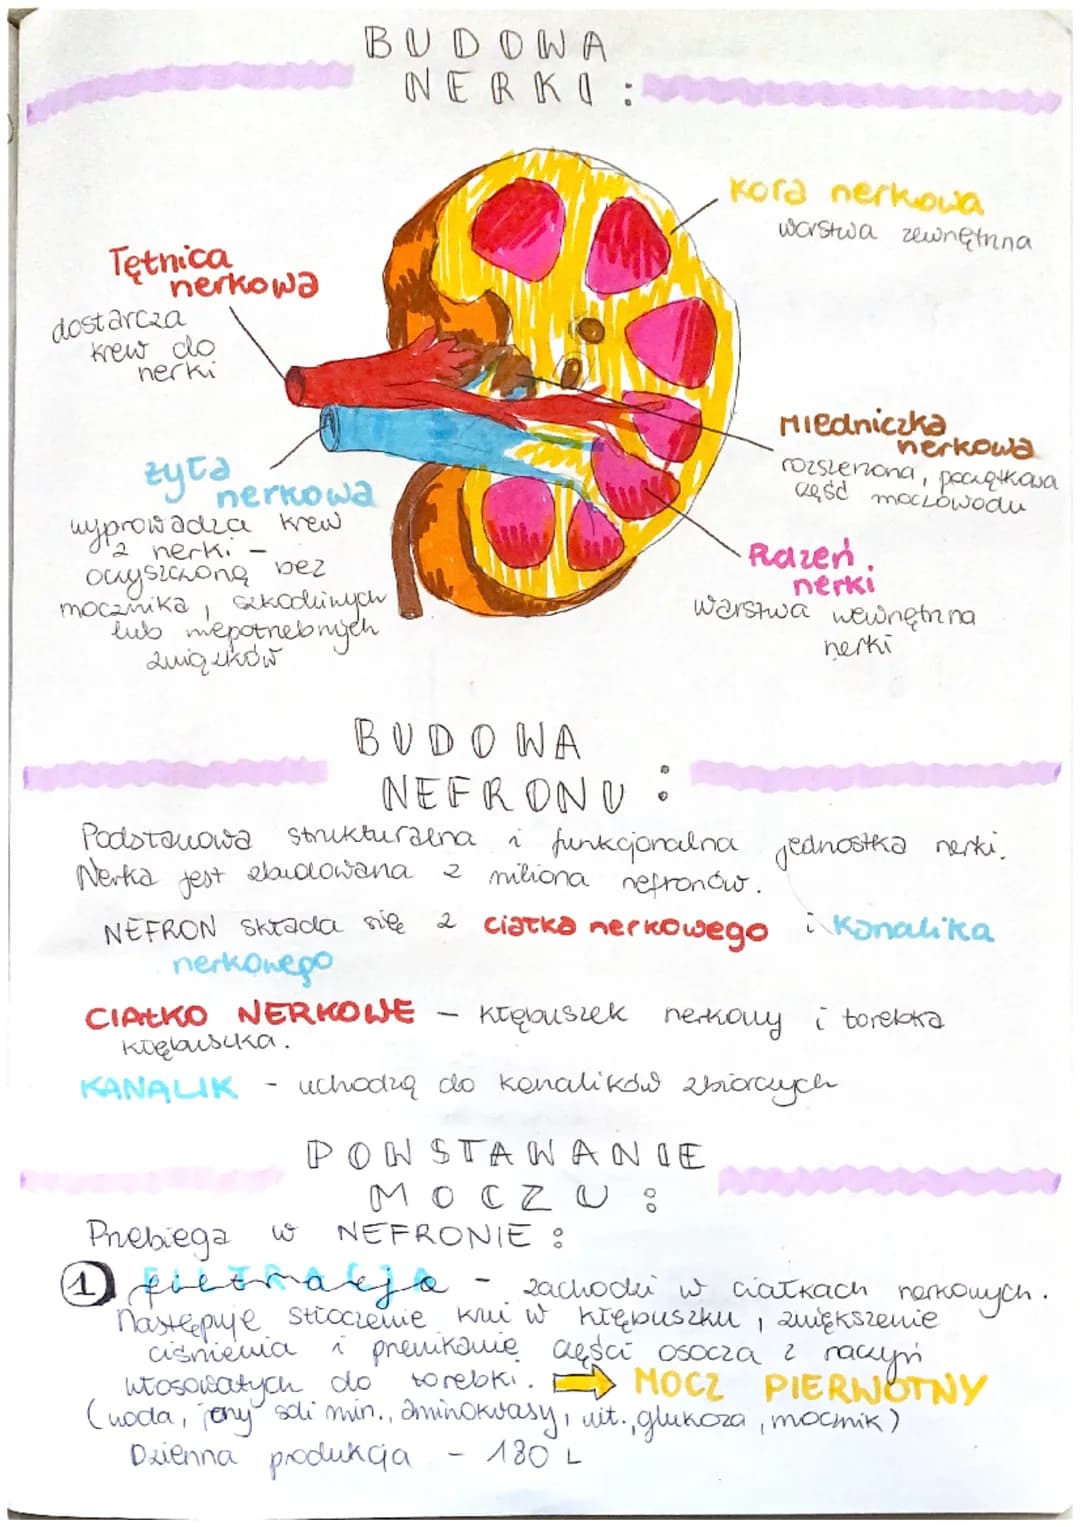 BUDOWA
NERKI:
Kora nerkowa
warstwa zewnętrzna
Tętnica
nerkowa
dostarcza
krew do
nerki
Miedniczka
nerkowa
rozszerzona, początkowa
część moczowodu
żyła
nerkowa
wyprowadza krew
z nerki -
oczyszczoną bez
mocznika, szkodliwych
lub niepotrzebnych
związków
Rdzeń
nerki
warstwa wewnętrzna
nerki
BUDOWA
NEFRONU:
Podstawowa strukturalna i funkcjonalna jednostka nerki.
Nerka jest zbudowana z miliona nefronów.
NEFRON składa się z ciałka nerkowego i kanalika
nerkowego
CIAŁKO NERKOWE – kłębuszek nerkowy i torebka
kłębuszka.
KANALIK - uchodzą do kanalików zbiorczych
POWSTAWANIE
MOCZU:
Przebiega w NEFRONIE:
1 filtracja - zachodzi w ciałkach nerkowych.
Następuje stłoczenie krwi w kłębuszku, zwiększenie
ciśnienia i przenikanie części osocza z naczyń
włosowatych do torebki. ⇒ MOCZ PIERWOTNY
(woda, jony soli min., aminokwasy, wit., glukoza, mocznik)
Dzienna produkcja - 180 L